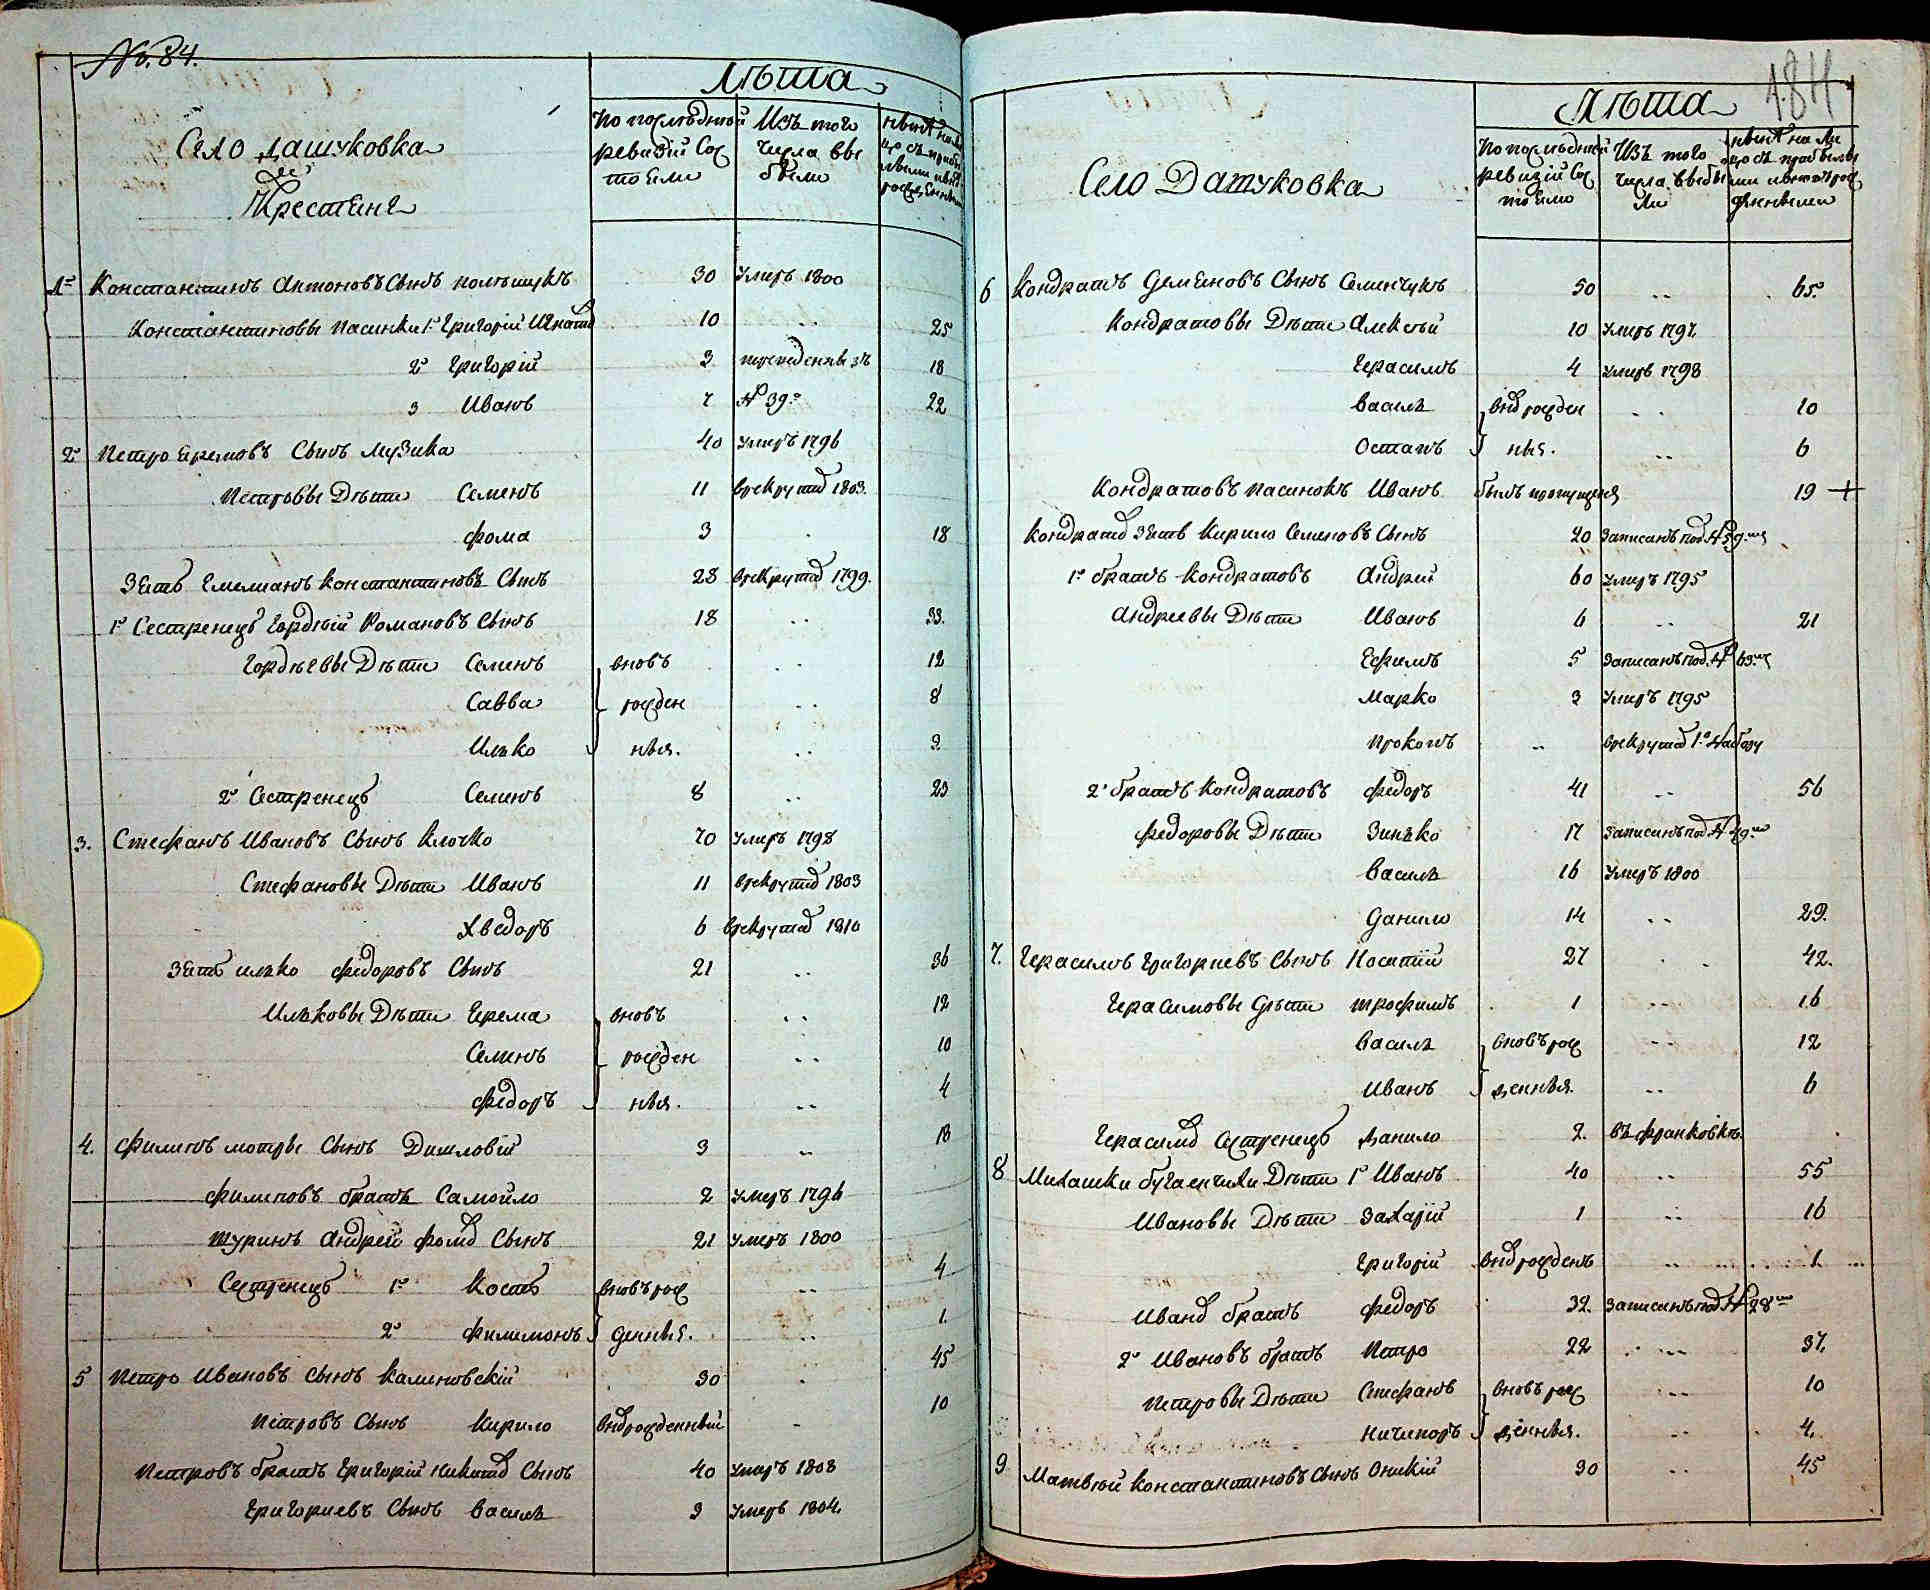 №. 84.
Лѣта
Село Дашуковка
Крестьяне
По последней ревизии Состояли
Изъ того числа выбыли
1е Константинъ Антоновъ Сынъ Полѣщукъ 30 Умеръ 1800
Константиновы Пасинки 1й Григорій Игнатов 10 .. 25
2й Григорій 3 18
3 Иванъ 7 № 39.о 22
2й Петро Яремовъ Сынъ Музика 40 Умеръ 1796
Петровы Дѣти Семенъ 11 Врекруты 1803.
Фома 3 . 18
Зять Емелианъ Константиновъ Сынъ 28 Врекруты 1799.
1й Сестренецъ Гордѣй Романовъ Сынъ 18 .. 33.
Гордѣевы Дѣти Семенъ вновь .. 12
Савва рожден .. 8
Илько ныя. .. 2
2й Сестренецъ Семенъ 8 .. 23
3. Стефанъ Ивановъ Сынъ Клочко 70 Умеръ 1798
Стефановы Дѣти Иванъ 11 Врекруты 1803
Хведоръ 6 Врекруты 1810
Зять Илько Федоровъ Сынъ 21 .. 36
Ильковы Дѣти Ерема вновь .. 12
Семенъ рожден .. 10
Федоръ ныя. .. 4
4. Филипъ Мотры Сынъ 3 .. 18
Филиповъ братъ Самойло 2 Умеръ 1796
Андрей Сынъ 21 Умеръ 1800
Сестренецъ 1й Кость вновь рож .. 4
2й Филимонъ денныя. .. 1.
5 Петро Ивановъ Сынъ Каменовскій 30 . 45
Петровъ Сынъ Кирило вновьрожденный .. 10
Петровъ братъ Григорій Никитов Сынъ 40 Умеръ 1808
Григориевъ Сынъ Василь 3 Умеръ 1804.
184
Лѣта
Село Дашуковка
По последней ревизіи Состояли
Изъ того числа выбыли
6 Кондратъ Демьяновъ Сынъ Семенчукъ 50 .. 65.
Кондратовы Дѣти Алексѣй 10 Умеръ 1797.
Герасимъ 4 Умеръ 1798
Василь вновьрожден .. 10
Остапъ ныя. .. 6
Кондратовъ пасинокъ Иванъ былъ пропущенъ 19 +
Кондратов Зять Кирило Семеновъ Сынъ 20 Записанъ под №
1й братъ Кондратовъ Андрей 60 Умеръ 1795
Андреевы Дѣти Иванъ 6 .. 21
Ефимъ 5 Записанъ под. № 63.
Марко 3 Умеръ 1795
Прокопъ .. Врекруты 1.о Набору
2й братъ Кондратовъ Федоръ 41 .. 56
Федоровы Дѣти Зинько 17 Записанъ под №
Василь 16 Умеръ 1800
Данило 14 .. 29.
7. Герасимъ Григориевъ Сынъ Носатій 27 . . 42.
Герасимовы Дѣти Трофимъ 1 .. 16
Василь вновь рож .. 12
Иванъ денныя .. 6
Герасимов Сестренецъ Данило 2. въ Франковкѣ.
8 Михашки Бугаенчихи Дѣти 1й Иванъ 40 .. 55
Ивановы Дѣти Захарій 1 .. 16
Григорій вновьрожденъ .. 1.
Иванов братъ Федоръ 32. Записанъ под № 28
2й Ивановъ братъ Петро 22 .. 37.
Петровы Дѣти Стефанъ вновь рож .. 10
Ничипоръ денныя. .. 4.
9 Матвѣй Константиновъ Сынъ Оникій 30 .. 45